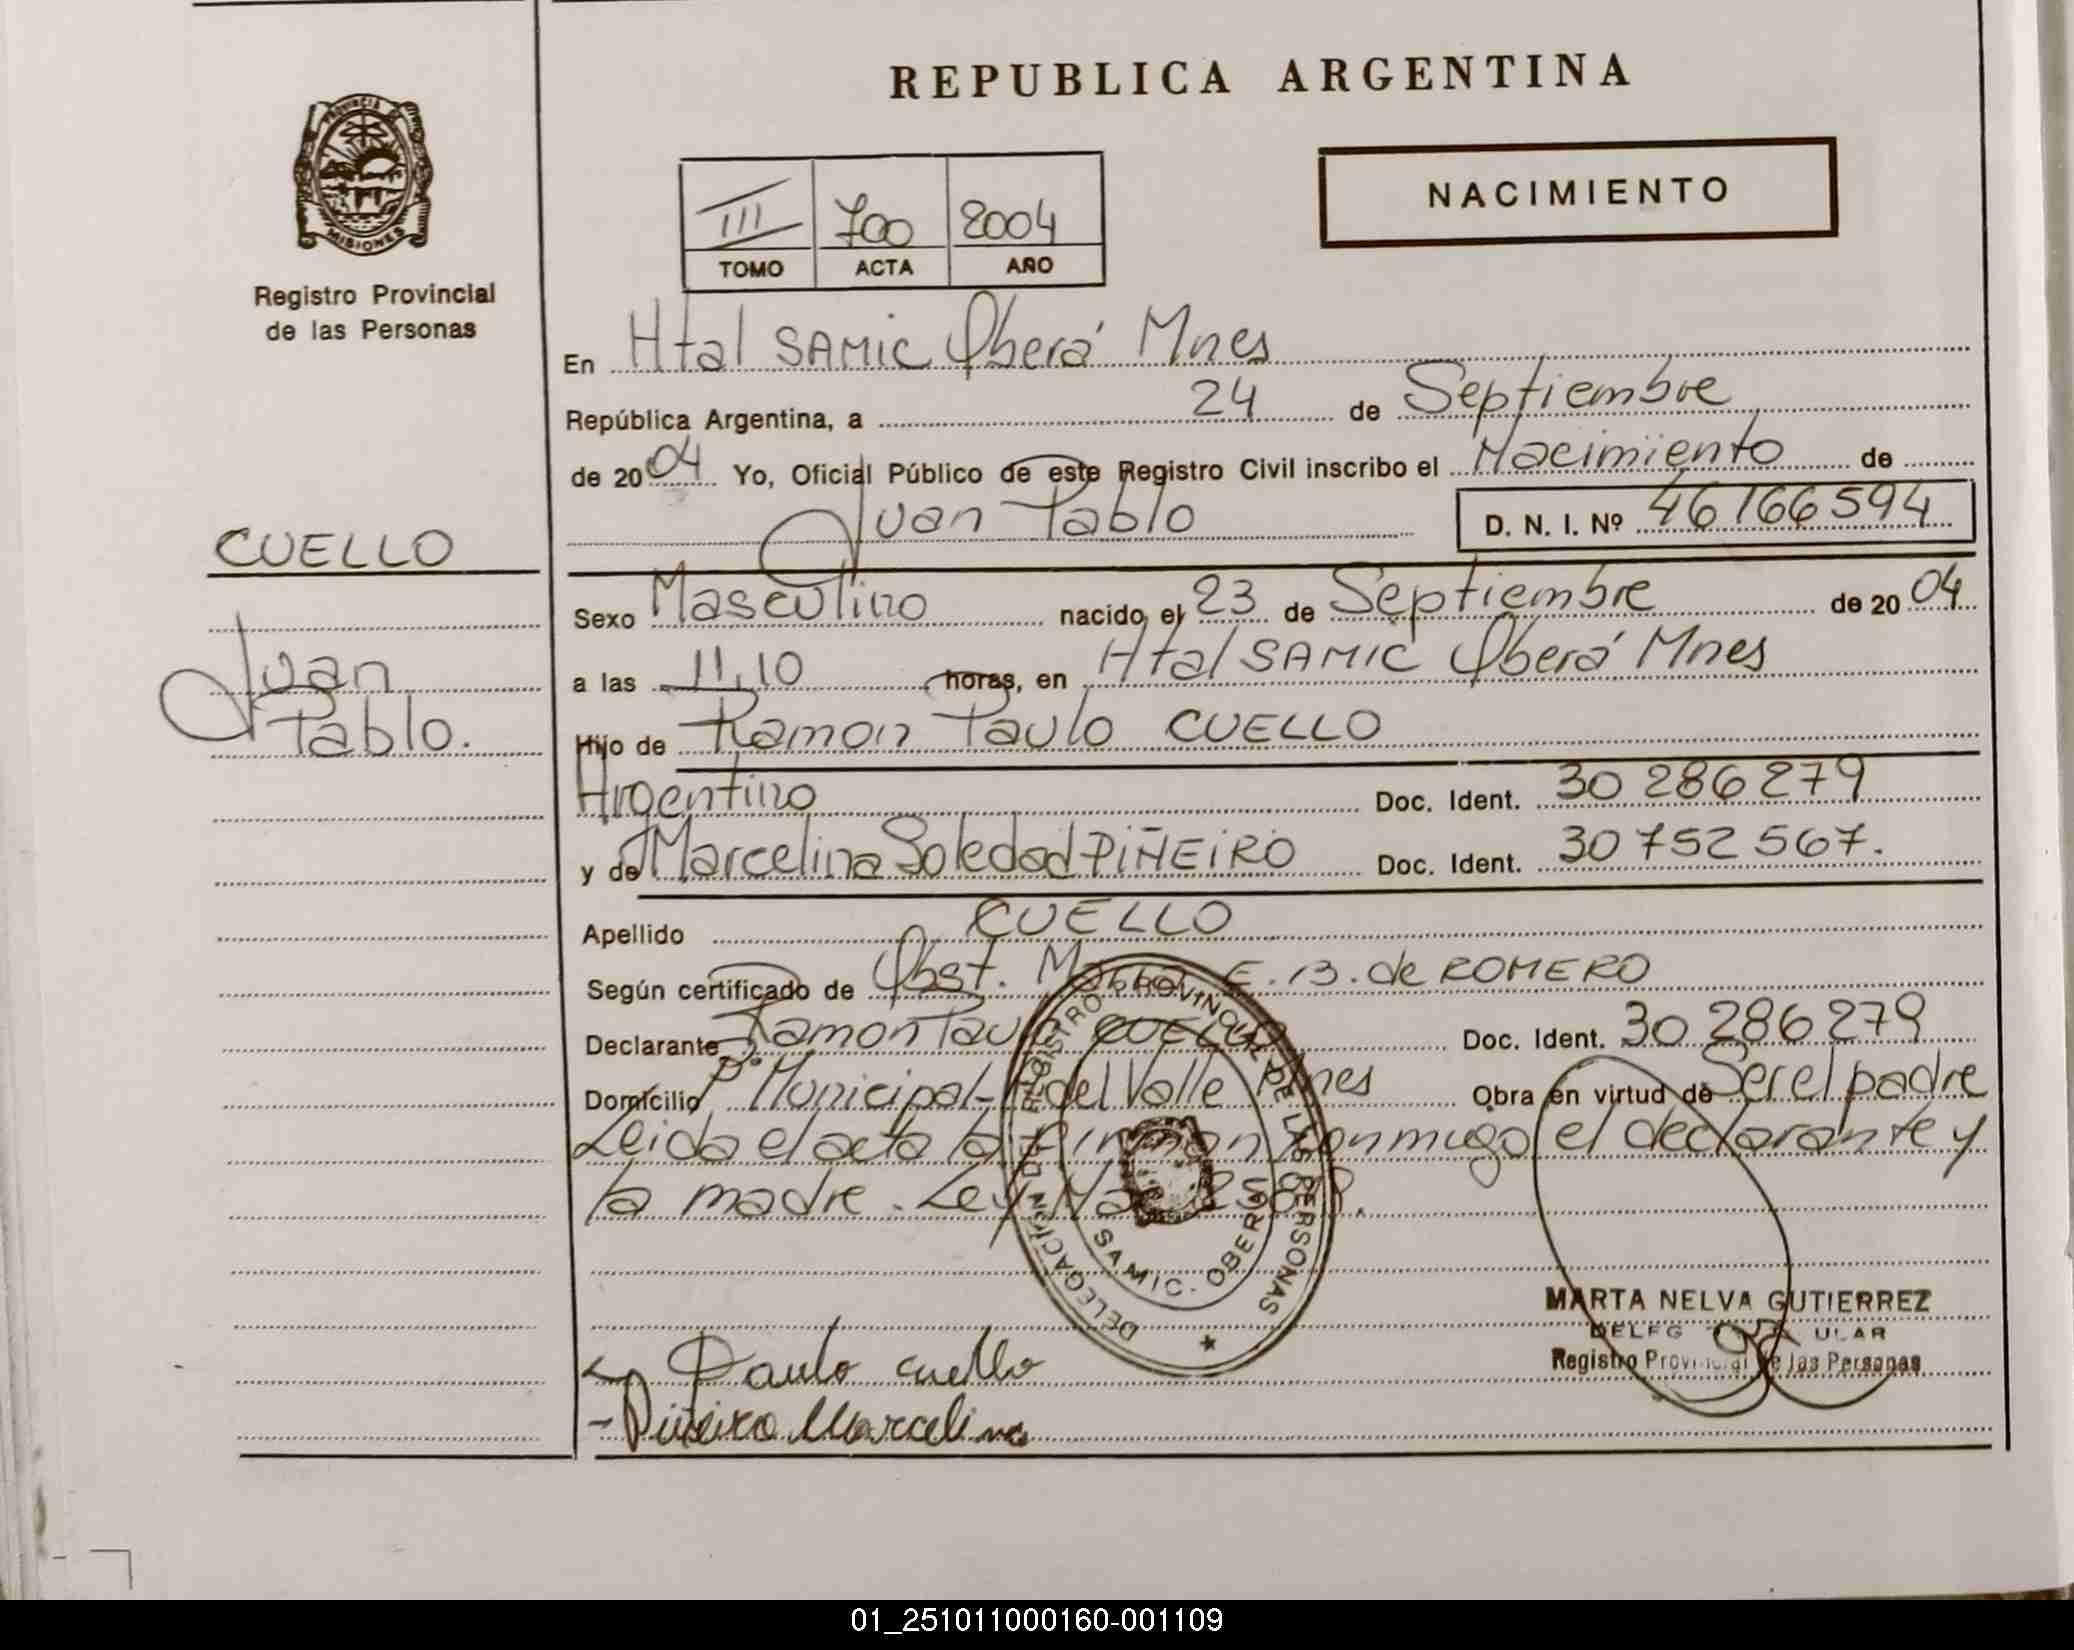 REPUBLICA ARGENTINA
PROVINCIA DE
MISIONES
Registro Provincial
de las Personas
NACIMIENTO
III 700 2004
TOMO ACTA AÑO
En Htal SAMIC Oberá Mnes
República Argentina, a 24 de Septiembre
de 2004 Yo, Oficial Público de este Registro Civil inscribo el Nacimiento de
Juan Pablo D. N. I. Nº 46166594
CUELLO
Juan
Pablo.
Sexo Masculino nacido el 23 de Septiembre de 2004
a las 11,10 horas, en Htal SAMIC Oberá Mnes
Hijo de Ramon Paulo CUELLO
Argentino Doc. Ident. 30 286 279
y de Marcelina Soledad PIÑEIRO Doc. Ident. 30 752 567.
Apellido CUELLO
Según certificado de Obst. E. B. de ROMERO
Declarante Ramon Paulo CUELLO Doc. Ident. 30 286 279
Domicilio Bº Municipal- del Valle Mnes Obra en virtud de Ser el padre
Leida el acta la firman conmigo el declarante y
la madre. Ley
DELEGACIÓN DEL REGISTRO PROVINCIAL DE LAS PERSONAS
SAMIC. OBERÁ
MARTA NELVA GUTIERREZ
Registro Provincial de las Personas
Paulo cuello
- Piñeiro Marcelina
01_251011000160-001109